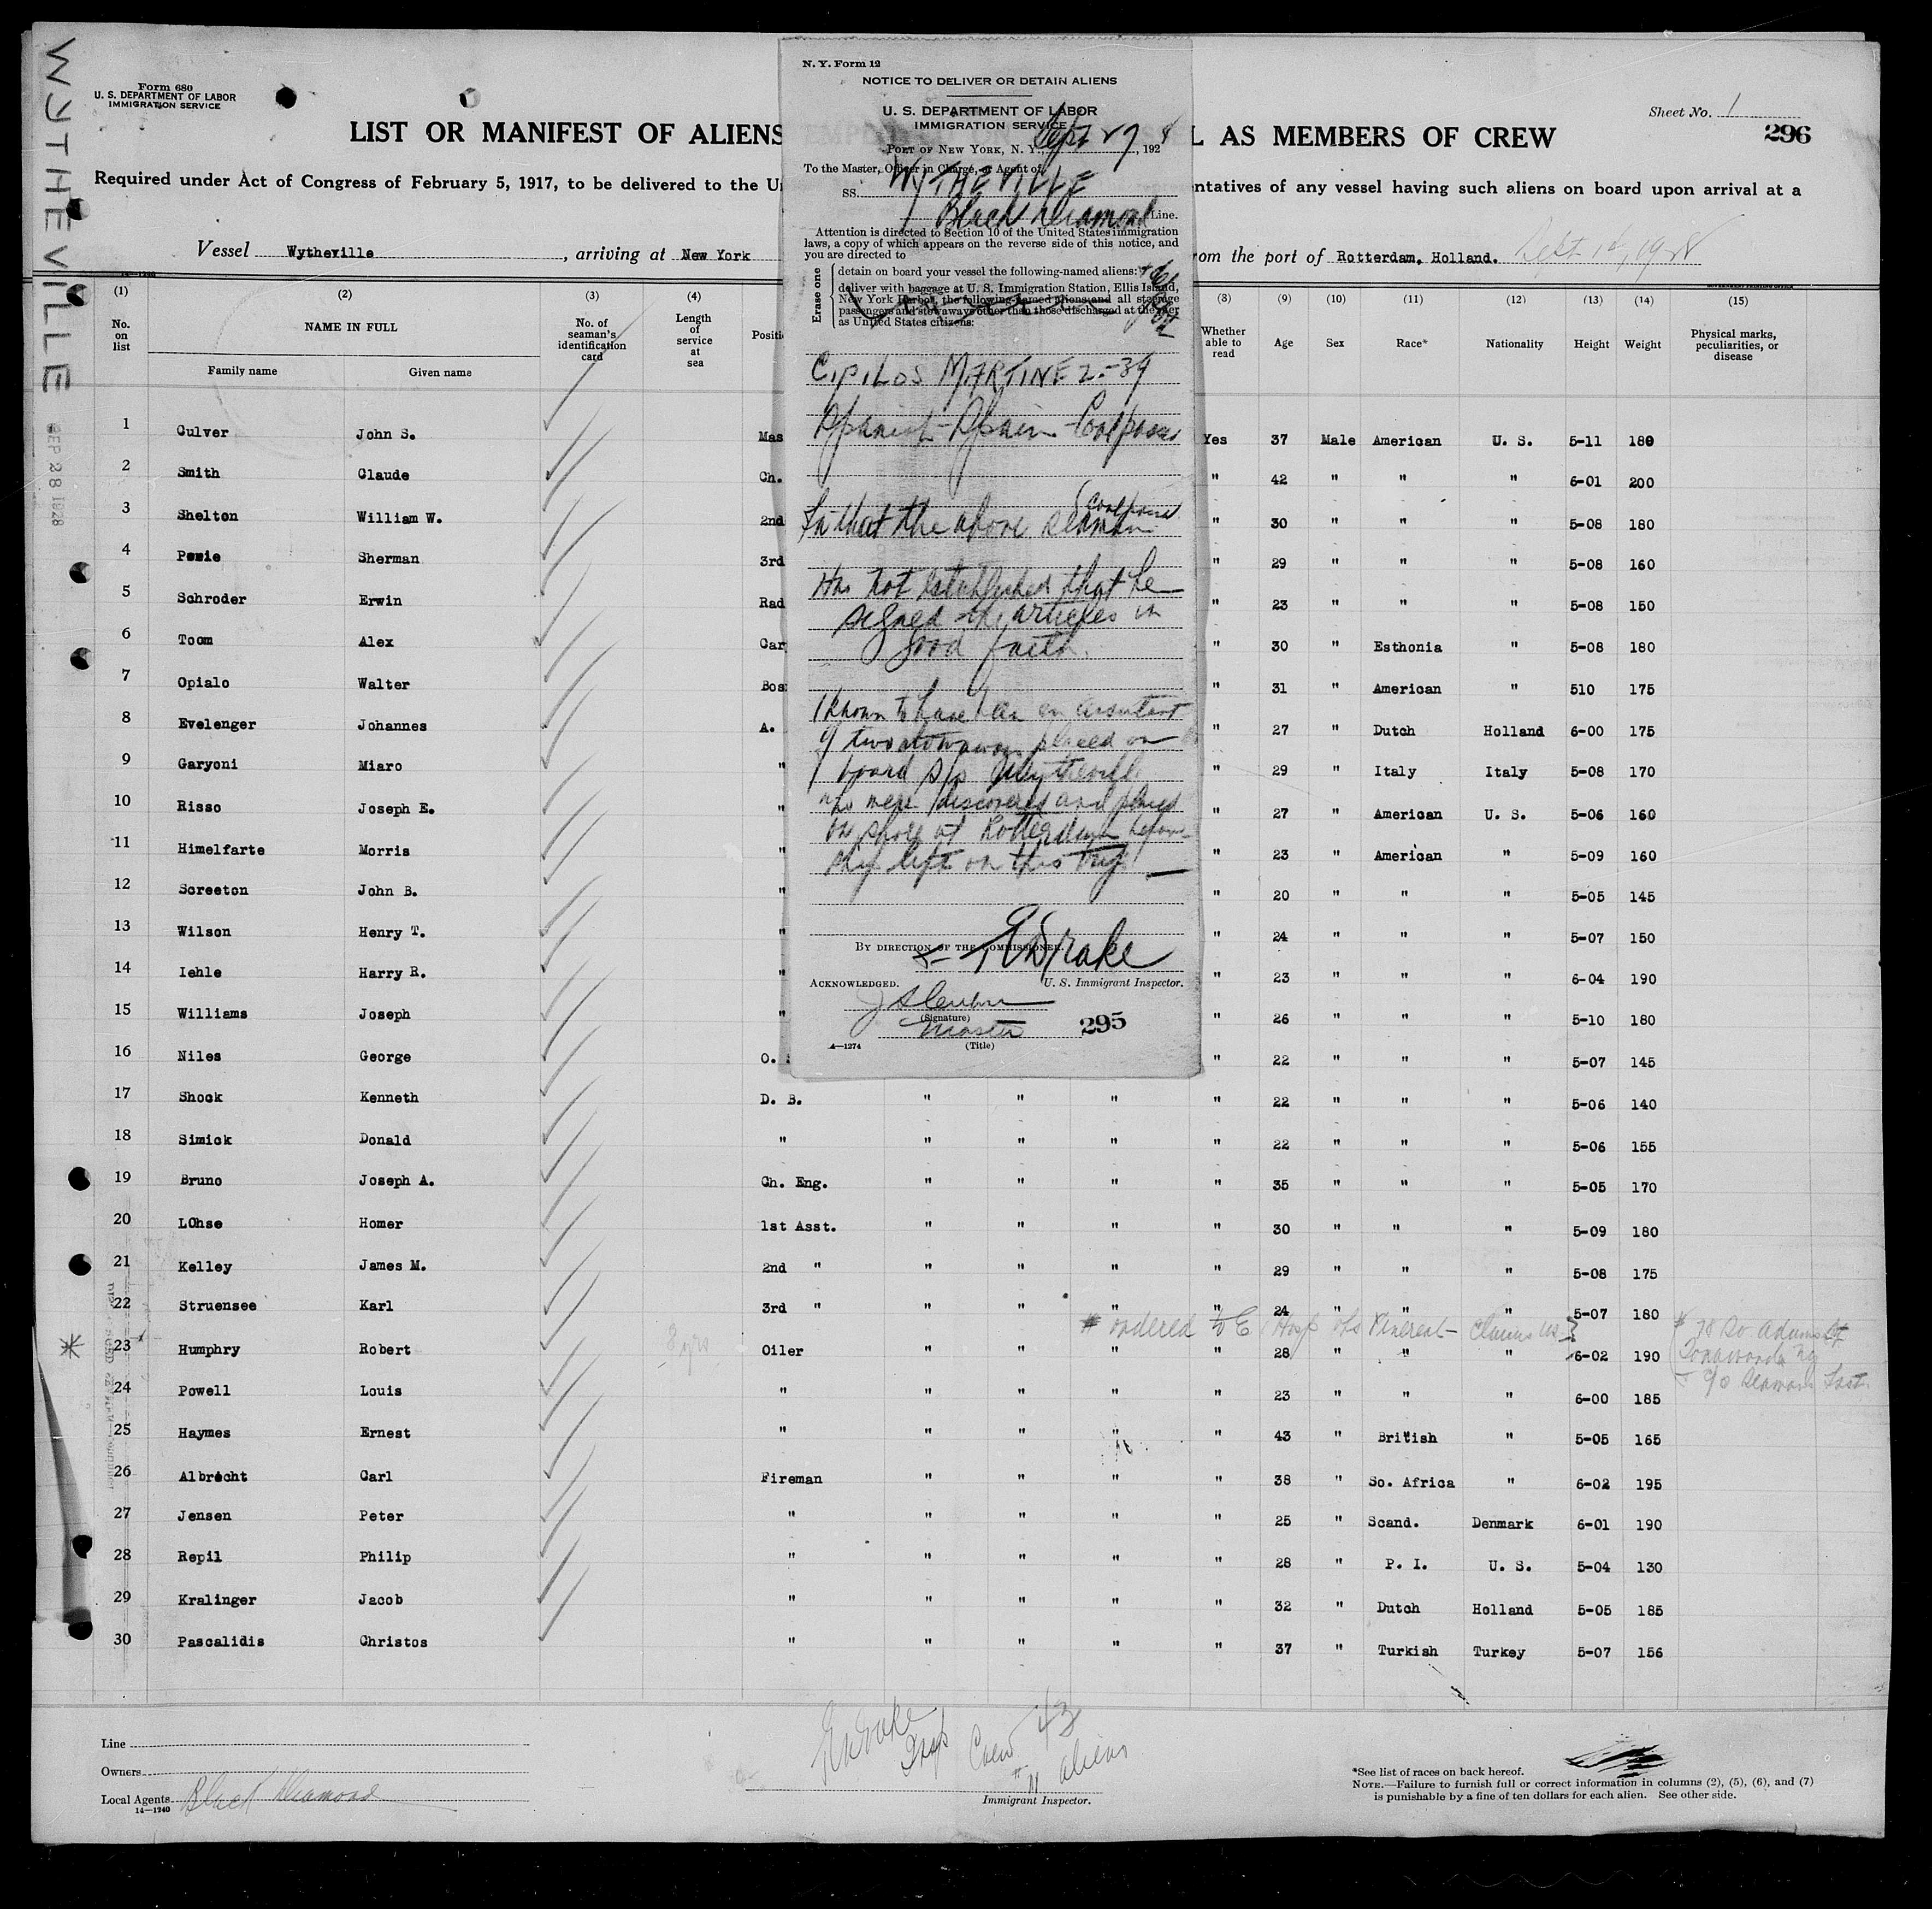 WYTHEVILLE
SEP 28 1928
Form 680
U. S. DEPARTMENT OF LABOR
IMMIGRATION SERVICE
Sheet No. 1
296
LIST OR MANIFEST OF ALIENS L AS MEMBERS OF CREW
Required under Act of Congress of February 5, 1917, to be delivered to the U ntatives of any vessel having such aliens on board upon arrival at a
Vessel Wytheville, arriving at New York om the port of Rotterdam, Holland. Sept 1928
N. Y. Form 12
NOTICE TO DELIVER OR DETAIN ALIENS
U. S. DEPARTMENT OF LABOR
IMMIGRATION SERVICE
PORT OF NEW YORK, N. Y., Sept 29, 1928
To the Master, Officer in Charge, or Agent of
SS. WYTHEVILLE
Black Diamond Line.
Attention is directed to Section 10 of the United States immigration
laws, a copy of which appears on the reverse side of this notice, and
you are directed to
Erase one
detain on board your vessel the following-named aliens:
deliver with baggage at U. S. Immigration Station, Ellis Island,
New York Harbor, the following-named aliens and all steerage
passengers and stowaways other than those discharged at the pier
as United States citizens:
MARTINEZ - 39
Spanish - Spain - Coalpasser
In that the above seaman
Has not established that he
signed the articles in
good faith.
known to have been an assistant
of two stowaways placed on
board S/S Wytheville
who were discovered and placed
on shore at Rotterdam before
ship left on this trip.
BY DIRECTION OF THE COMMISSIONER.
Drake
U. S. Immigrant Inspector.
ACKNOWLEDGED.
(Signature)
Master
(Title)
4—1274
295
(1) (2) (3) (4) (8) (9) (10) (11) (12) (13) (14) (15)
No. on list
NAME IN FULL
Family name Given name
No. of seaman's identification card
Length of service at sea
Positi
Whether able to read
Age Sex Race* Nationality Height Weight
Physical marks, peculiarities, or disease
1 Culver John S. Mas Yes 37 Male American U. S. 5-11 180
2 Smith Claude Ch. " 42 " " " 6-01 200
3 Shelton William W. 2nd " 30 " " " 5-08 180
4 Sherman 3rd " 29 " " " 5-08 160
5 Schroder Erwin Rad " 23 " " " 5-08 150
6 Toom Alex Car " 30 " Esthonia " 5-08 180
7 Opialo Walter Bos " 31 " American " 510 175
8 Evelenger Johannes A. " 27 " Dutch Holland 6-00 175
9 Garyoni Miaro " " 29 " Italy Italy 5-08 170
10 Risso Joseph E. " " 27 " American U. S. 5-06 160
11 Himelfarte Morris " " 23 " American " 5-09 160
12 Screeton John B. " " 20 " " " 5-05 145
13 Wilson Henry T. " " 24 " " " 5-07 150
14 Iehle Harry R. " " 23 " " " 6-04 190
15 Williams Joseph " " 26 " " " 5-10 180
16 Niles George O. " 22 " " " 5-07 145
17 Shock Kenneth D. B. " " " " 22 " " " 5-06 140
18 Simick Donald " " " " " 22 " " " 5-06 155
19 Bruno Joseph A. Ch. Eng. " " " " 35 " " " 5-05 170
20 LOhse Homer 1st Asst. " " " " 30 " " " 5-09 180
21 Kelley James M. 2nd " " " " " 29 " " " 5-08 175
22 Struensee Karl 3rd " " " " " 24 " " " 5-07 180
# ordered to E I Hosp Venereal - Claims US
# 78 So Adams St
Tonawanda NY
c/o Seamans Inst.
*
23 Humphry Robert 8 yrs Oiler " " " " 28 " " " 6-02 190
24 Powell Louis " " " " " 23 " " " 6-00 185
25 Haymes Ernest " " " " " 43 " British " 5-05 165
26 Albrecht Carl Fireman " " " " 38 " So. Africa " 6-02 195
27 Jensen Peter " " " " " 25 " Scand. Denmark 6-01 190
28 Repil Philip " " " " " 28 " P. I. U. S. 5-04 130
29 Kralinger Jacob " " " " " 32 " Dutch Holland 5-05 185
30 Pascalidis Christos " " " " " 37 " Turkish Turkey 5-07 156
Line
Owners
Local Agents Black Diamond
14—1240
Drake
Insp
Crew 43
11 aliens
Immigrant Inspector.
*See list of races on back hereof.
NOTE.—Failure to furnish full or correct information in columns (2), (5), (6), and (7)
is punishable by a fine of ten dollars for each alien. See other side.